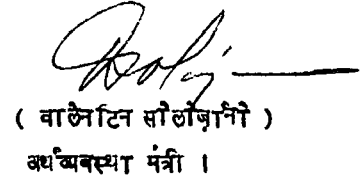 ( वालेनटिन सोलोर्ज़ानो )
अर्थव्यवस्था मंत्री ।